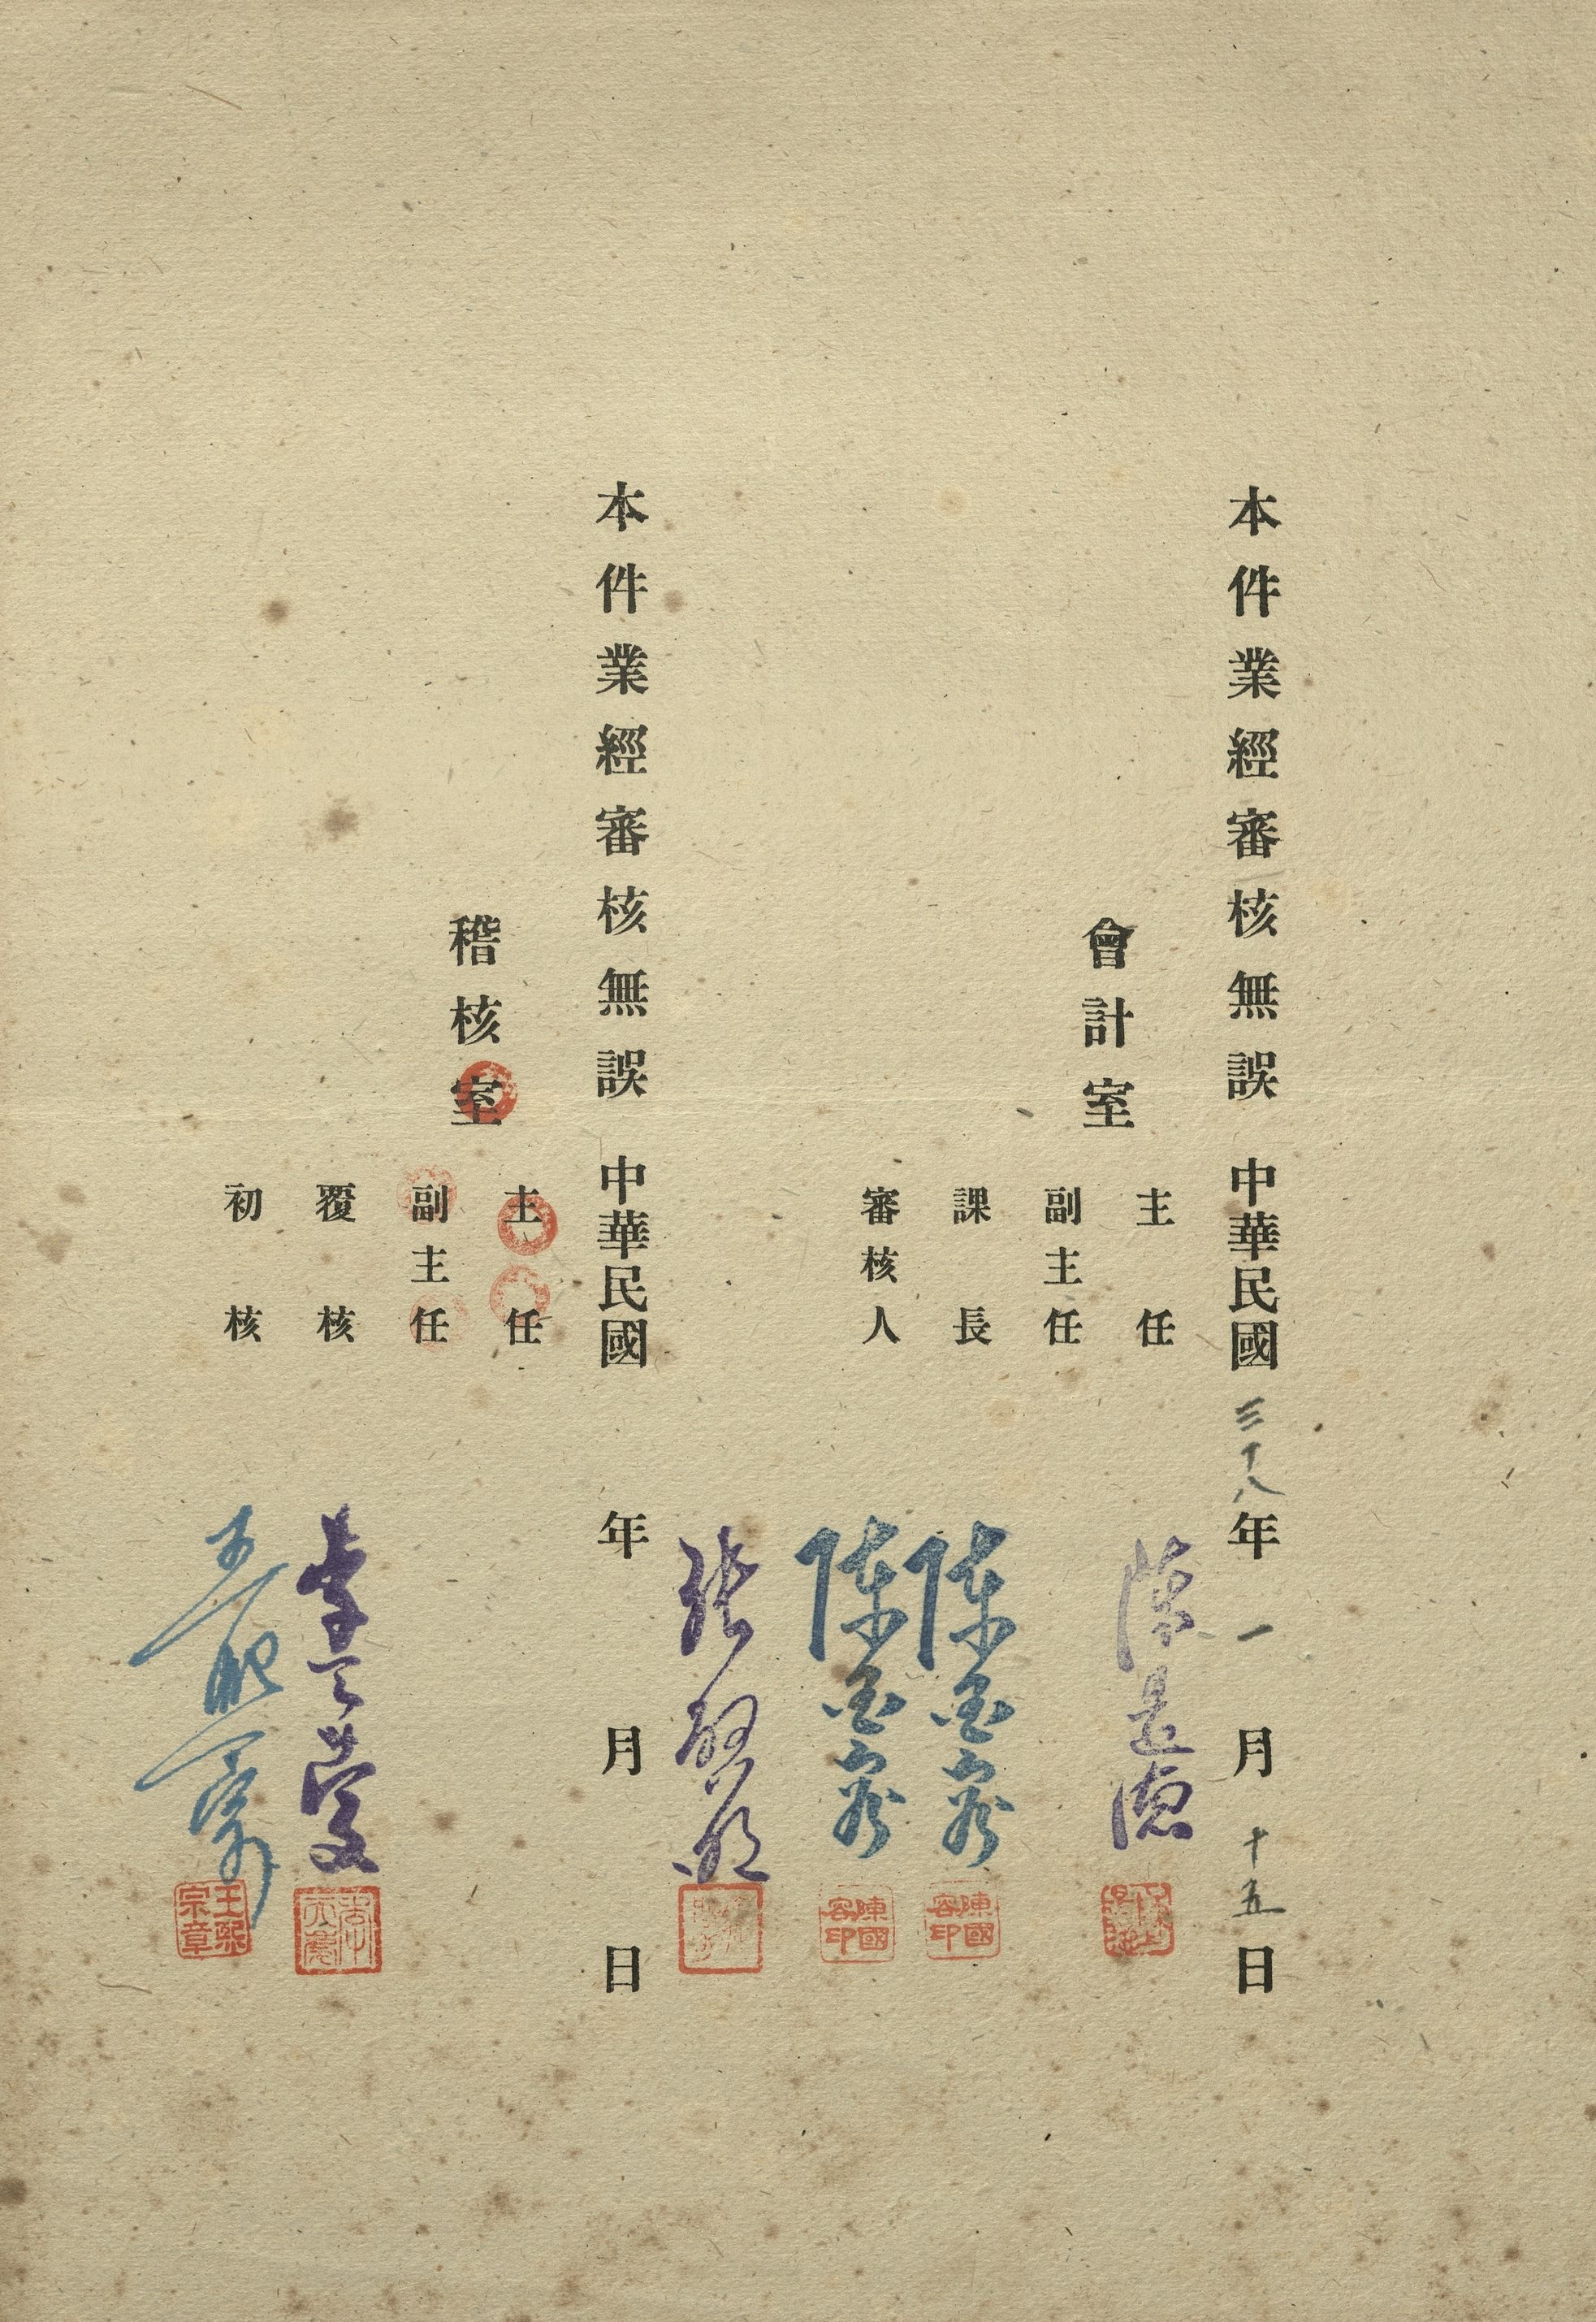 本件業經審核無誤 中華民國三十八年一月十五日
會計室
主任
副主任
課長
審核人
陳
陳國容
陳國容
陳國容印
陳國容印
張
本件業經審核無誤 中華民國 年 月 日
稽核室
主任
副主任
覆核
初核
李
王熙宗
王熙宗章